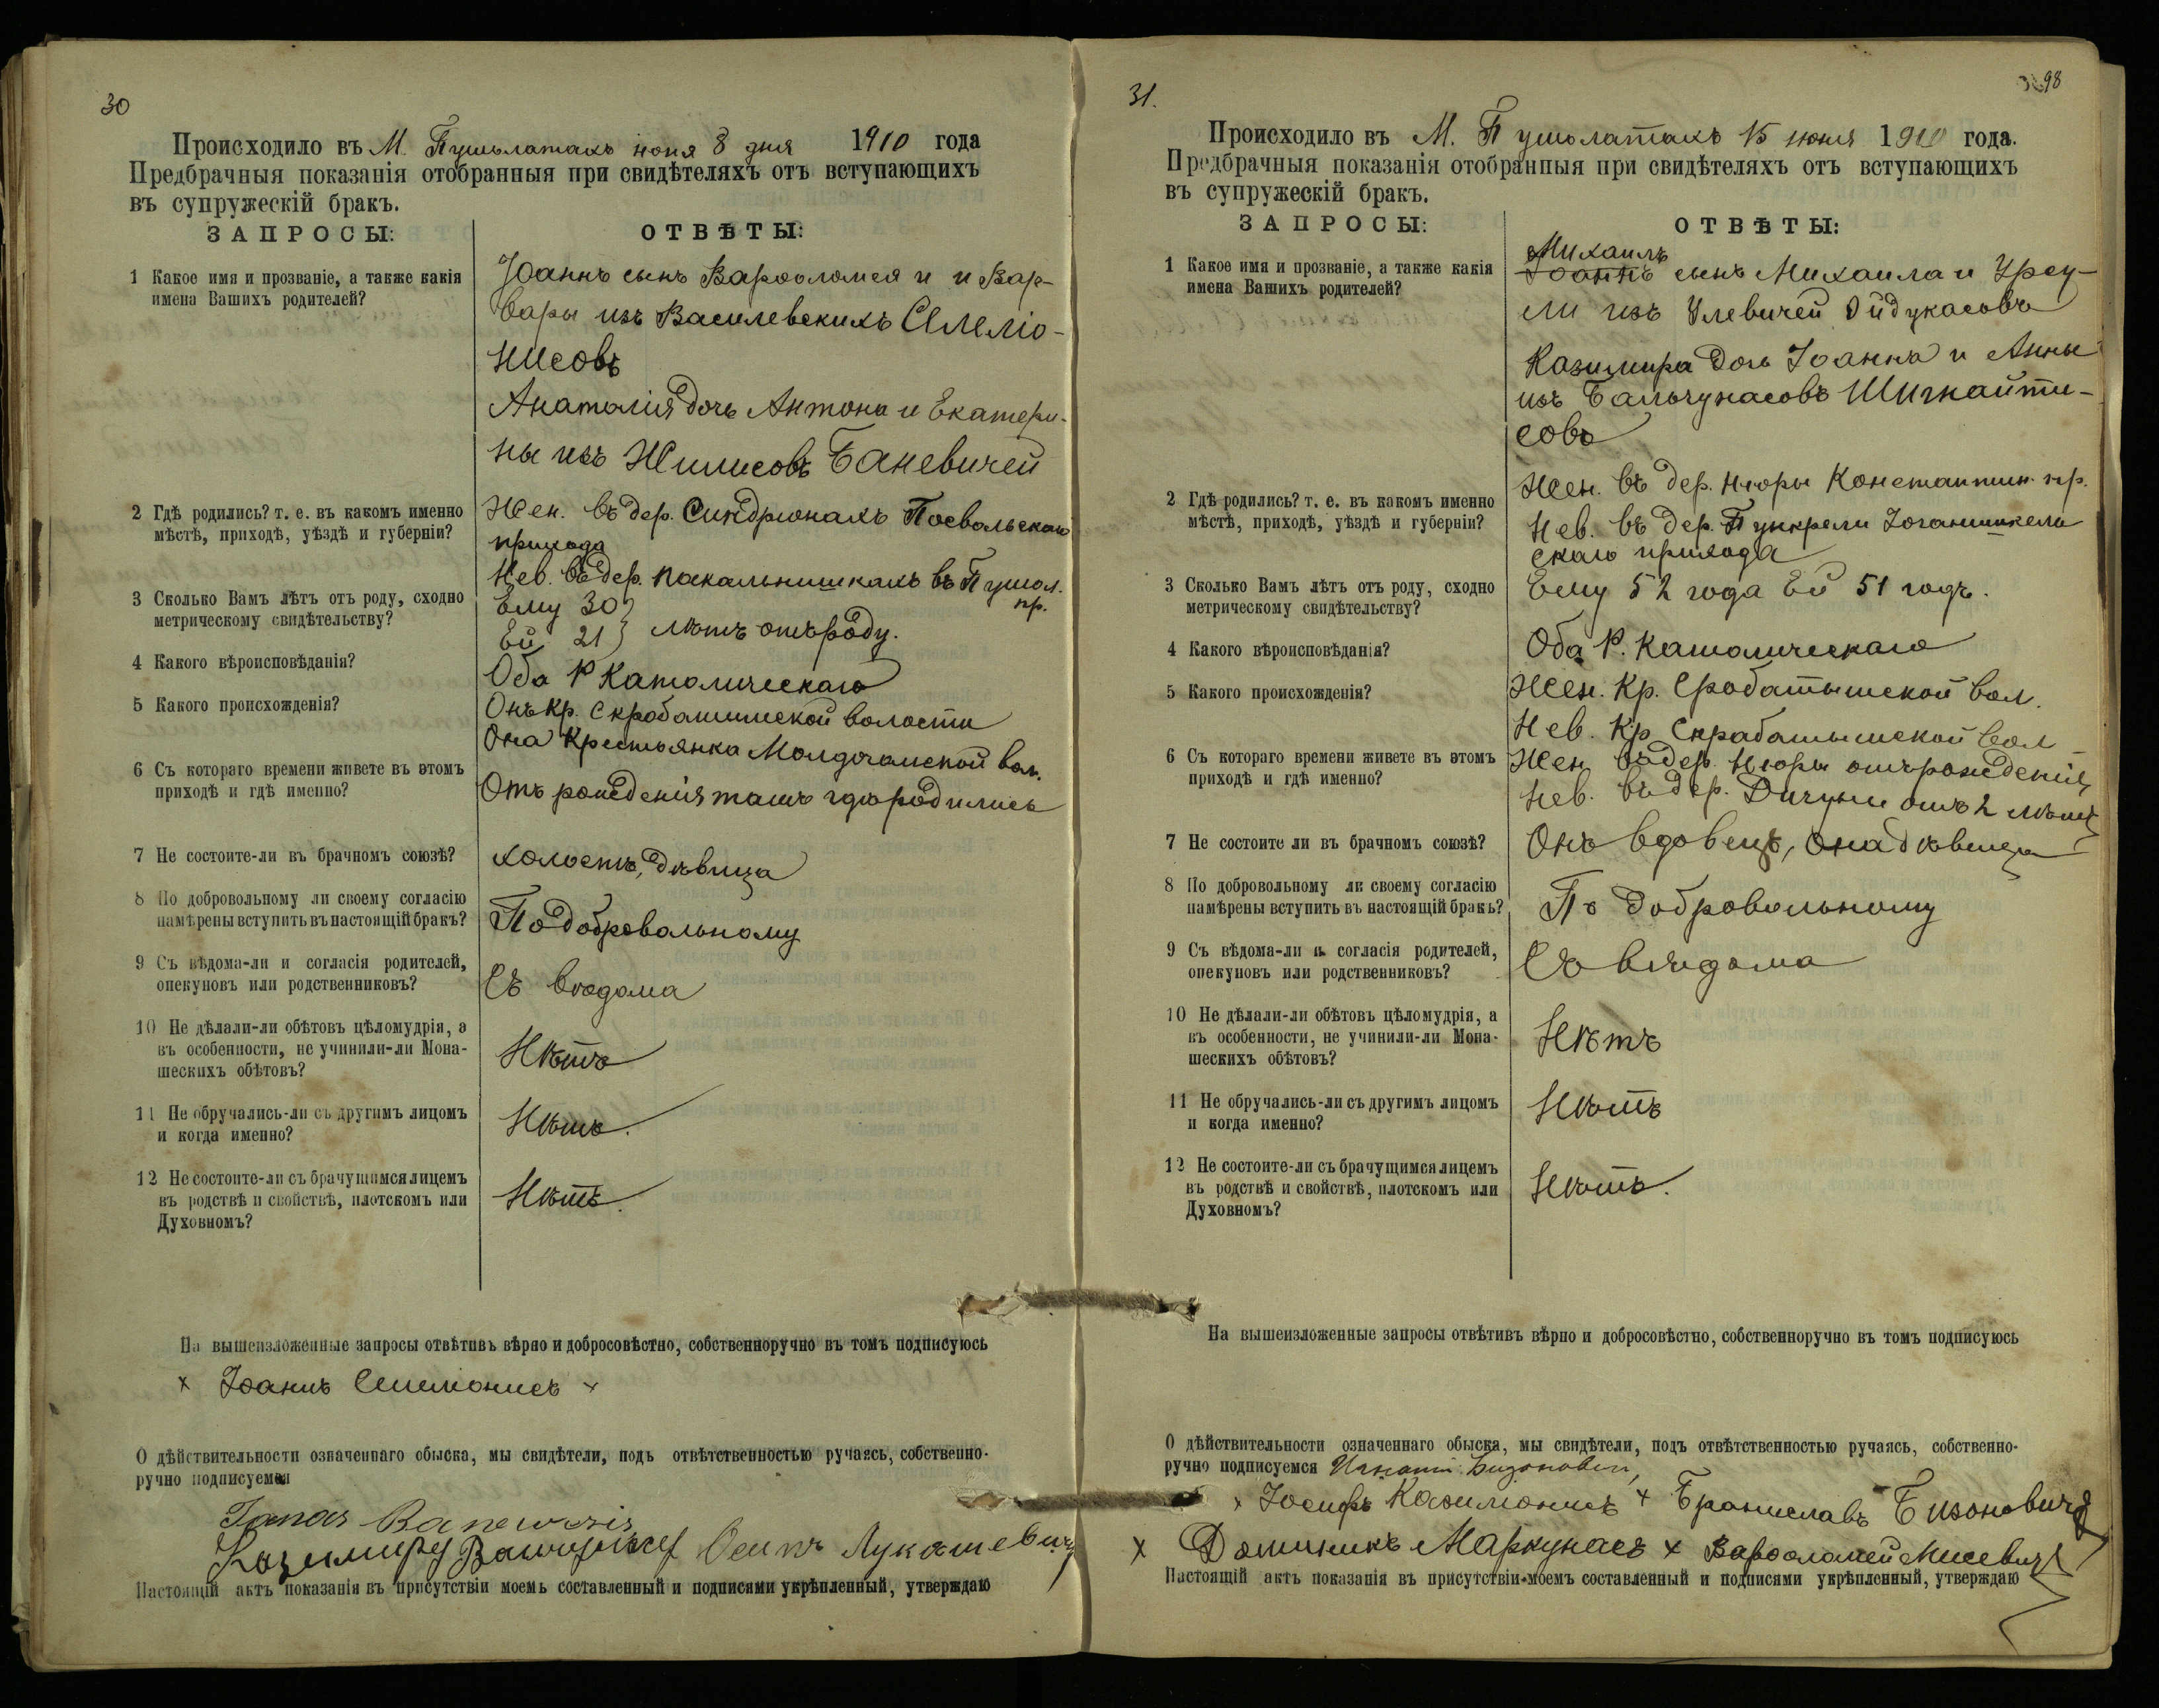 30
Происходило въ М. Пушолатахъ іюня 8 дня 1910 года
Предбрачныя показанія отобранныя при свидѣтеляхъ отъ вступающихъ
въ супружескій бракъ.
ЗАПРОСЫ:
ОТВѢТЫ:
1 Какое имя и прозваніе, а также какія
имена Вашихъ родителей?
Іоаннъ сынъ Варѳоломея и и Вар-
вары изъ Василевскихъ Семліо-
нисовъ
Анатолія дочь Антона и Екатери-
ны изъ Жилисовъ Баневичей
2 Гдѣ родились? т. е. въ какомъ именно
мѣстѣ, приходѣ, уѣздѣ и губерніи?
Жен. въ дер. Синдріонахъ Посвольскаго
прихода
Нев. въ дер. Пакальнишкахъ въ Пушол.
пр.
3 Сколько Вамъ лѣтъ отъ роду, сходно
метрическому свидѣтельству?
Ему 30
Ей 21 } лѣтъ отъ роду.
4 Какого вѣроисповѣданія?
Оба Р Католическаго
5 Какого происхожденія?
Онъ Кр. Скробатишской волости
Она Крестьянка Молдочамской вол.
6 Съ котораго времени живете въ этомъ
приходѣ и гдѣ именно?
Отъ рожденія тамъ гдѣ родились
7 Не состоите-ли въ брачномъ союзѣ?
холостъ, дѣвица
8 По добровольному ли своему согласію
намѣрены вступить въ настоящій бракъ?
По добровольному
9 Съ вѣдома-ли и согласія родителей,
опекуновъ или родственниковъ?
Съ вѣдома
10 Не дѣлали-ли обѣтовъ цѣломудрія, а
въ особенности, не учинили-ли Мона-
шескихъ обѣтовъ?
Нѣтъ
11 Не обручались-ли съ другимъ лицомъ
и когда именно?
Нѣтъ.
12 Не состоите-ли съ брачущимся лицемъ
въ родствѣ и свойствѣ, плотскомъ или
Духовномъ?
Нѣтъ.
На вышеизложенные запросы отвѣтивъ вѣрно и добросовѣстно, собственноручно въ томъ подписуюсь
x Іоаннъ Семліонисъ x
О дѣйствительности означеннаго обыска, мы свидѣтели, подъ отвѣтственностью ручаясь, собственно-
ручно подписуемся
Banewizis
Осипъ Лукашевичъ
Настоящій актъ показанія въ присутствіи моемъ составленный и подписями укрѣпленный, утверждаю
31.
98
Происходило въ М. Пушолатахъ 15 іюня 1910 года.
Предбрачныя показанія отобранныя при свидѣтеляхъ отъ вступающихъ
въ супружескій бракъ.
ЗАПРОСЫ:
ОТВѢТЫ:
1 Какое имя и прозваніе, а также какія
имена Вашихъ родителей?
Михаилъ
Іоаннъ сынъ Михаила и Урсу-
ли изъ Улевичей Ойдукасовъ
Казимира дочь Іоанна и Анны
изъ Бальчунасовъ Шигнайти-
совъ
2 Гдѣ родились? т. е. въ какомъ именно
мѣстѣ, приходѣ, уѣздѣ и губерніи?
Жен. въ дер. Нюры Константин. пр.
Нев. въ дер. Пункрели Іоганишкель
скаго прихода
3 Сколько Вамъ лѣтъ отъ роду, сходно
метрическому свидѣтельству?
Ему 52 года Ей 51 годъ.
4 Какого вѣроисповѣданія?
Оба Р. Католическаго
5 Какого происхожденія?
Жен. Кр. Сробатышской вол.
Нев. Кр Скрабатышской вол
6 Съ котораго времени живете въ этомъ
приходѣ и гдѣ именно?
Жен. въ дер. Нюры отъ рожденія
Нев. въ дер. Дичуни отъ 2 лѣтъ
7 Не состоите ли въ брачномъ союзѣ?
Онъ вдовецъ, она дѣвица
8 По добровольному ли своему согласію
намѣрены вступить въ настоящій бракъ?
По добровольному
9 Съ вѣдома-ли и согласія родителей,
опекуновъ или родственниковъ?
Съ вѣдома
10 Не дѣлали-ли обѣтовъ цѣломудрія, а
въ особенности, не учинили-ли Мона-
шескихъ обѣтовъ?
Нѣтъ
11 Не обручались-ли съ другимъ лицомъ
и когда именно?
Нѣтъ
12 Не состоите-ли съ брачущимся лицемъ
въ родствѣ и свойствѣ, плотскомъ или
Духовномъ?
Нѣтъ.
На вышеизложенные запросы отвѣтивъ вѣрно и добросовѣстно, собственноручно въ томъ подписуюсь
О дѣйствительности означеннаго обыска, мы свидѣтели, подъ отвѣтственностью ручаясь, собственно-
ручно подписуемся
x Іосифъ Казиміонисъ x Брониславъ Бизоновичъ
x Доминикъ Маркунасъ x Варѳоломей Мисевичъ
Настоящій актъ показанія въ присутствіи моемъ составленный и подписями укрѣпленный, утверждаю